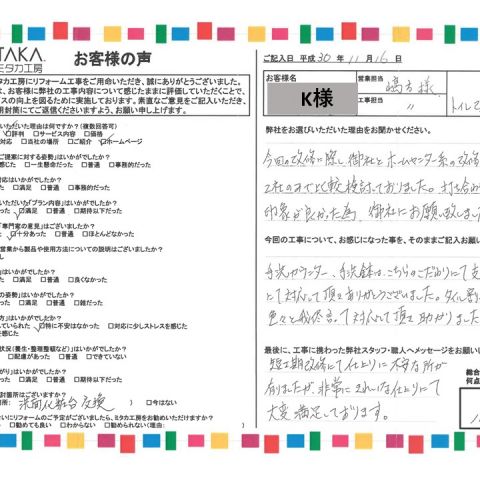 TAKA
ミタカ工房
お客様の声
タカ工房にリフォーム工事をご用命いただき、誠にありがとうございました。
は、お客様に弊社の工事内容について感じたままに評価していただくことで、
スの向上を図るために実施しております。素直なご意見をご記入いただき、
用封筒にてご返信くださいますよう、お願い申し上げます。
いただいた理由は何ですか？（複数回答可）
評判 □サービス内容 □価格
対応 □当社の場所 □ご紹介 ☑ホームページ
ご提案に対する姿勢はいかがでしたか？
感じた □一生懸命だった □普通 □事務的だった
対応はいかがでしたか？
った □満足 □普通 □事務的だった
いただいた「プラン内容」はいかがでしたか？
った □満足 □普通 □期待以下だった
「専門家の意見」はございましたか？
った ☑十分あった □普通 □ほとんどなかった
営業から製品や使用方法についての説明はございましたか？
はいかがでしたか？
った □満足 □普通 □良くなかった
の姿勢」はいかがでしたか？
った □満足 □普通 □雑だった
方」はいかがでしたか？
ていられた ☑特に不安はなかった □対応に少しストレスを感じた
を感じた
状況（養生・整理整頓など）」はいかがでしたか？
った □配慮があった □普通 □できていない
がり」はいかがでしたか？
った □満足 □普通 □期待以下だった
討箇所はございますか？
所： 洗面化粧台交換 ） □今はない
いにリフォームのご予定がございましたら、ミタカ工房をお勧めいただけますか？
□勧めても良い □わからない □勧められない（理由：
ご記入日 平成 30 年 11 月 16 日
お客様名
K様
営業担当
様
工事担当
〃
トイレ
弊社をお選びいただいた理由をお聞かせください。
今回の改修に際し、御社とホームセンター系の改修
2社のみで比較検討しておりました。打ち合
印象が良かった為、御社にお願い致しま
今回の工事について、お感じになった事を、そのままご記入お願い
手洗カウンター、手洗鉢はこちらのこだわりにて
て対応して頂きありがとうございました。タイル
色々と対応して頂き助かりました
最後に、工事に携わった弊社スタッフ・職人へメッセージをお願いし
短工期改修にて仕上りに不安な所が
ありましたが、非常にきれいな仕上りにて
大変満足しております。
総合
何点